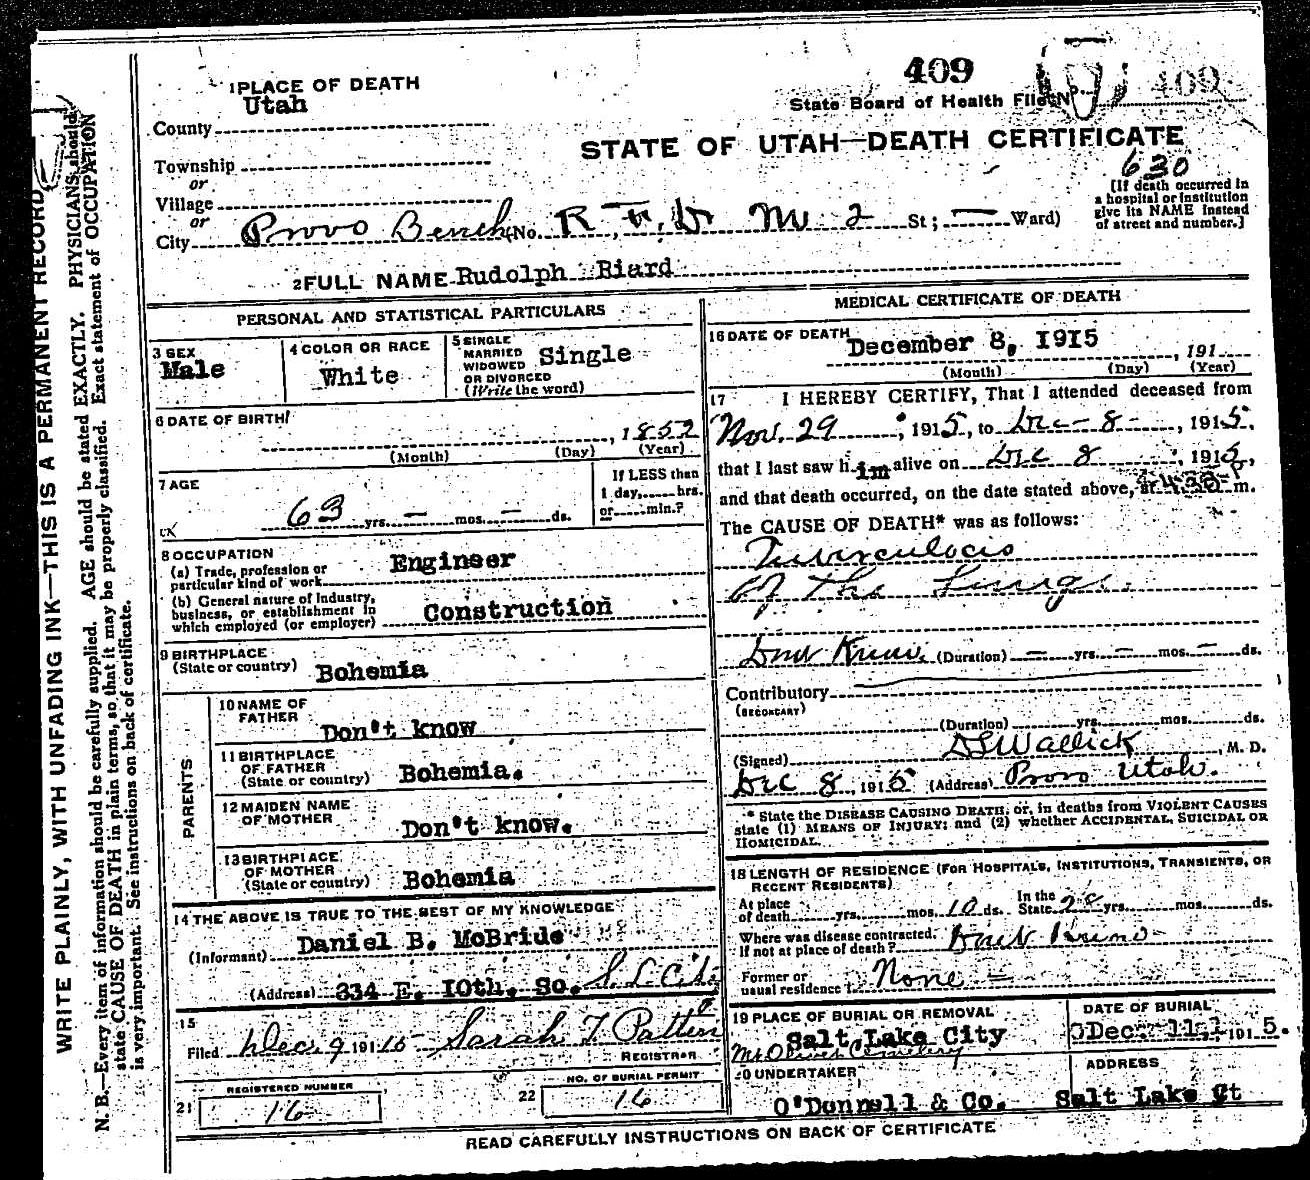 409
409
State Board of Health File No.
STATE OF UTAH—DEATH CERTIFICATE
630
[If death occurred in
a hospital or institution
give its NAME instead
of street and number.]
1 PLACE OF DEATH
County Utah
Township
or
Village
or
City Provo Bench (No. R. F. D. No. 2 St; — Ward)
2 FULL NAME Rudolph Riard
PERSONAL AND STATISTICAL PARTICULARS
3 SEX
Male
4 COLOR OR RACE
White
5 SINGLE
MARRIED
WIDOWED
OR DIVORCED
(Write the word)
Single
6 DATE OF BIRTH
, 1852
(Month) (Day) (Year)
7 AGE
63 yrs. — mos. — ds.
If LESS than
1 day, hrs.
or min.?
8 OCCUPATION
(a) Trade, profession or
particular kind of work Engineer
(b) General nature of Industry,
business, or establishment in
which employed (or employer) Construction
9 BIRTHPLACE
(State or country) Bohemia
PARENTS
10 NAME OF
FATHER Don't know
11 BIRTHPLACE
OF FATHER
(State or country) Bohemia.
12 MAIDEN NAME
OF MOTHER Don't know.
13 BIRTHPLACE
OF MOTHER
(State or country) Bohemia
14 THE ABOVE IS TRUE TO THE BEST OF MY KNOWLEDGE
(Informant) Daniel B. McBride
(Address) 334 E. 10th. So. S. L. City
15
Filed Dec. 9 1915 Sarah T. Patten
REGISTRAR
21 REGISTERED NUMBER
16
22 NO. OF BURIAL PERMIT
16
MEDICAL CERTIFICATE OF DEATH
16 DATE OF DEATH
December 8, 1915 , 191
(Month) (Day) (Year)
17 I HEREBY CERTIFY, That I attended deceased from
Nov. 29, 1915, to Dec - 8, 1915,
that I last saw him alive on Dec 8, 1915,
and that death occurred, on the date stated above, at 4:30 P m.
The CAUSE OF DEATH* was as follows:
Tuberculocis
of the Lungs.
Dont Know. (Duration) — yrs. — mos. — ds.
Contributory
(SECONDARY)
(Duration) yrs. mos. ds.
(Signed) Wallick, M. D.
Dec 8, 1915 (Address) Provo Utah.
* State the DISEASE CAUSING DEATH, or, in deaths from VIOLENT CAUSES
state (1) MEANS OF INJURY; and (2) whether ACCIDENTAL, SUICIDAL OR
HOMICIDAL.
18 LENGTH OF RESIDENCE (FOR HOSPITALS, INSTITUTIONS, TRANSIENTS, OR
RECENT RESIDENTS)
At place
of death yrs. mos. 10 ds.
In the
State 28 yrs. mos. ds.
Where was disease contracted,
If not at place of death? Dont Know
Former or
usual residence None
19 PLACE OF BURIAL OR REMOVAL
Salt Lake City
Mt. Olivet Cemetery
DATE OF BURIAL
Dec. 11, 1915.
20 UNDERTAKER
O'Donnell & Co.
ADDRESS
Salt Lake Ct
READ CAREFULLY INSTRUCTIONS ON BACK OF CERTIFICATE
WRITE PLAINLY, WITH UNFADING INK—THIS IS A PERMANENT RECORD
N. B.—Every item of information should be carefully supplied. AGE should be stated EXACTLY. PHYSICIANS should
state CAUSE OF DEATH in plain terms, so that it may be properly classified. Exact statement of OCCUPATION
is very important. See instructions on back of certificate.